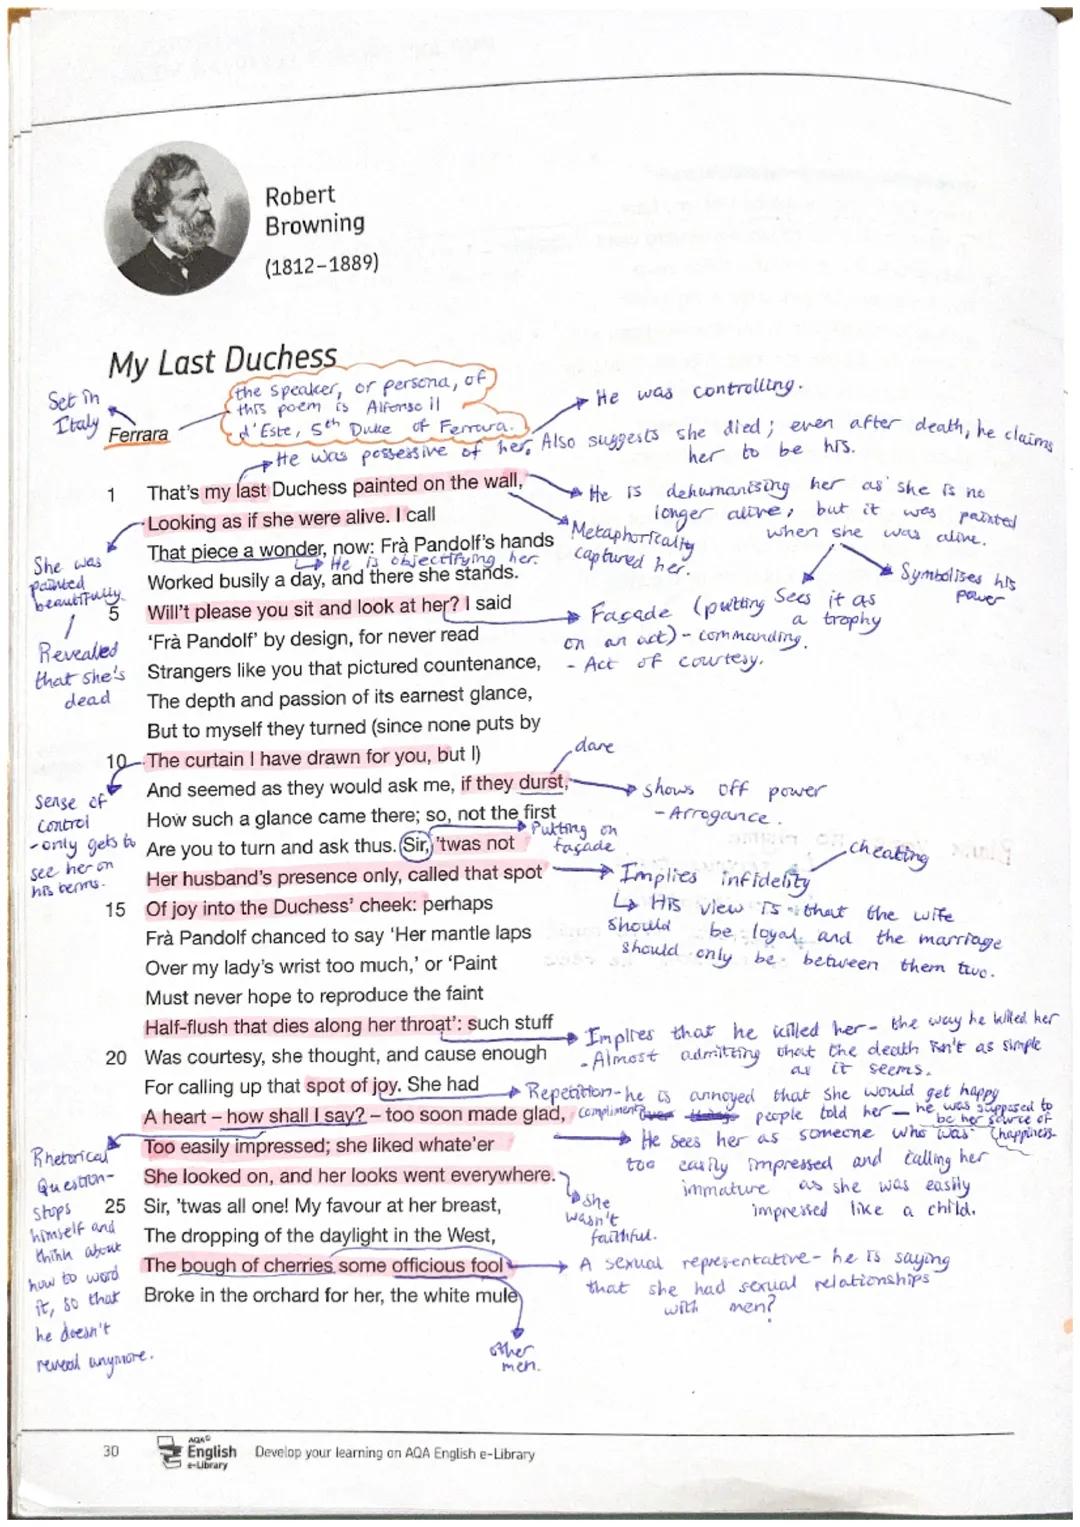 Robert
Browning
(1812–1889)
My Last Duchess
Set in
Italy
Ferrara
the speaker, or persona, of
this poem is Alfonso il
d'Este, 5th Duke of Ferrara.
He was controlling.
He was possessive of her. Also suggests she died; even after death, he claims
her to be his.
1 That's my last Duchess painted on the wall,
Looking as if she were alive. I call
That piece a wonder, now: Frà Pandolf's hands
He is objectifying her.
Worked busily a day, and there she stands.
5 Will't please you sit and look at her? I said
'Frà Pandolf' by design, for never read
Strangers like you that pictured countenance,
The depth and passion of its earnest glance,
But to myself they turned (since none puts by
10 The curtain I have drawn for you, but I)
And seemed as they would ask me, if they durst,
How such a glance came there; so, not the first
Are you to turn and ask thus. Sir, 'twas not
Her husband's presence only, called that spot
15 Of joy into the Duchess' cheek: perhaps
Frà Pandolf chanced to say 'Her mantle laps
Over my lady's wrist too much,' or 'Paint
Must never hope to reproduce the faint
Half-flush that dies along her throat': such stuff
20 Was courtesy, she thought, and cause enough
For calling up that spot of joy. She had
A heart – how shall I say? – too soon made glad,
Too easily impressed; she liked whate'er
She looked on, and her looks went everywhere.
25 Sir, 'twas all one! My favour at her breast,
The dropping of the daylight in the West,
The bough of cherries some officious fool
Broke in the orchard for her, the white mule
She was
painted
beautifully.
Revealed
that she's
dead
Sense of
control
- only gets to
see her on
his terms.
Rhetorical
Question-
stops
himself and
think about
how to word
it, so that
he doesn't
reveal anymore.
He is dehumanising her as she is no
longer alive, but it was painted
when she was alive.
Metaphorically
captured her.
Sees it as
a trophy
Symbolises his
power
Façade (putting
on an act) - commanding.
- Act of courtesy.
dare
shows off power
- Arrogance.
Putting on
façade
cheating
Implies infidelity
His view is that the wife
should be loyal and the marriage
should only be between them two.
Implies that he killed her- the way he killed her
- Almost admitting that the death isn't as simple
as it seems.
Repetition- he is annoyed that she would get happy
compliment people told her— he was supposed to
be her source of
happiness.
He sees her as someone who was
too easily impressed and calling her
immature as she was easily
impressed like a child.
She
wasn't
faithful.
A sexual representative- he is saying
that she had sexual relationships
with men?
other
men.
30
AQA
English
e-Library
Develop your learning on AQA English e-Library